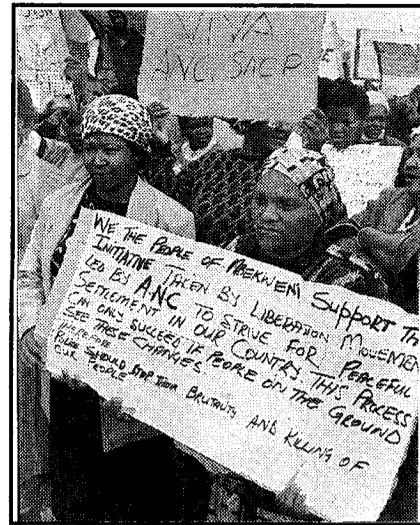 VIVA
ANC, SACP
WE THE PEOPLE OF MBEKWENI SUPPORT TH
INITIATIVE TAKEN BY LIBERATION MOVEMEN
LED BY ANC TO STRIVE FOR PEACEFUL
SETTLEMENT IN OUR COUNTRY. THIS PROCESS
CAN ONLY SUCCEED IF PEOPLE ON THE GROUND
SEE THESE CHANGES.
THEREFORE
POLICE SHOULD STOP THEIR BRUTALITY AND KILLING OF
OUR PEOPLE